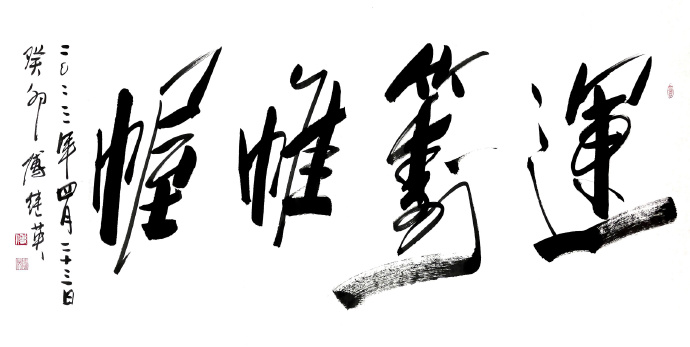 運籌帷幄
二〇二三年四月二十三日
癸卯 傅建英